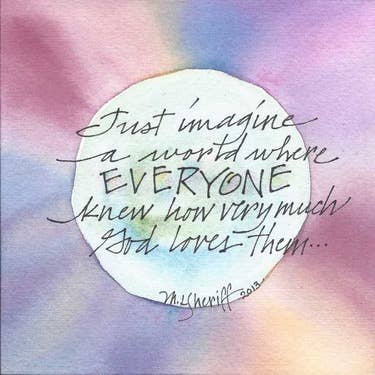 Just imagine
a world where
EVERYONE
knew how very much
God loves them...
M.L.Sheriff 2013